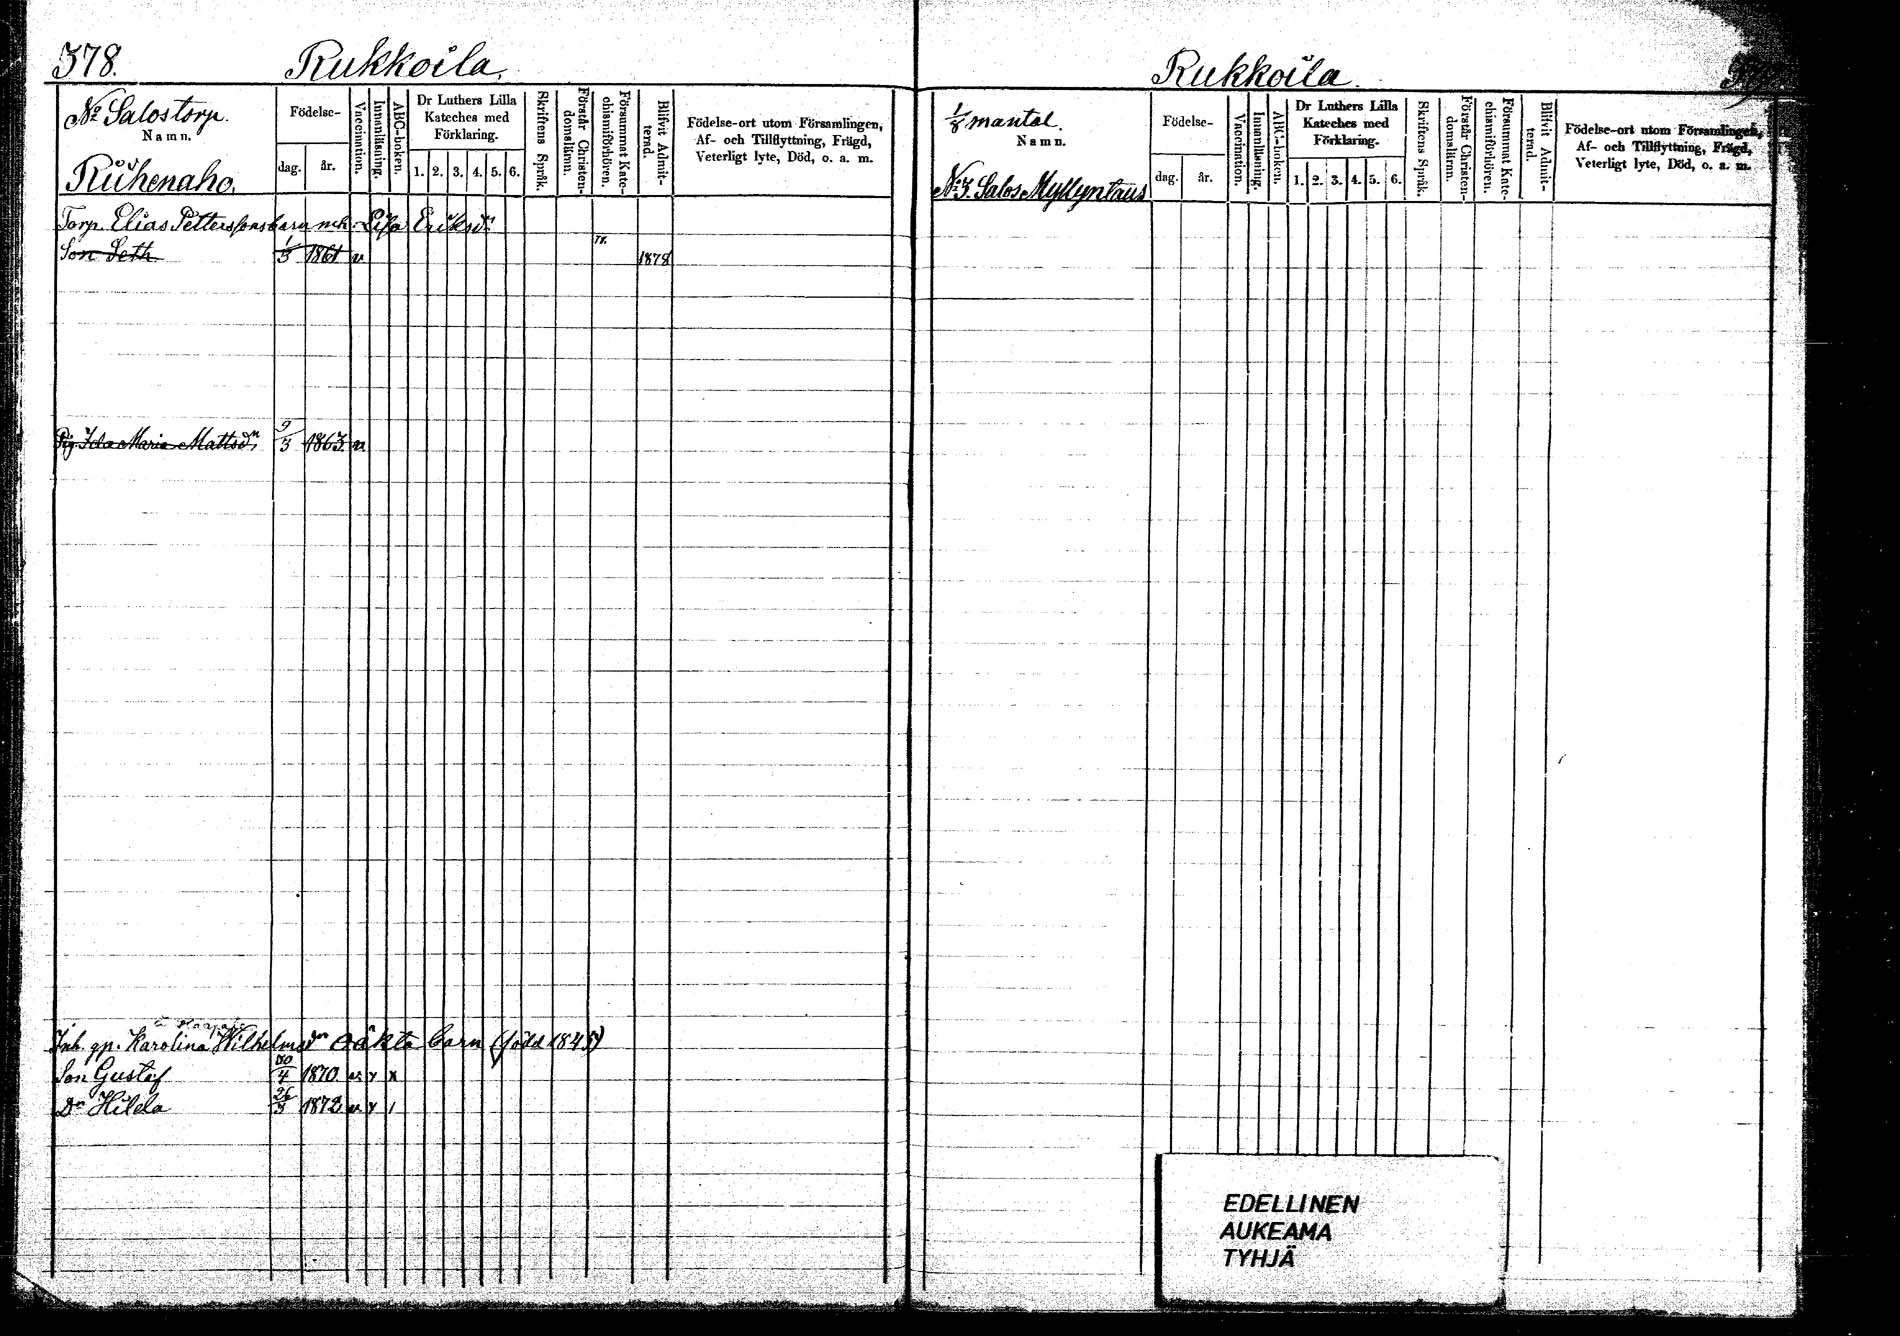 378.
Rukkoila.
No Salos torp.
Namn.
Riihenaho.
Födelse-
dag.
år.
Vaccination.
Innanläsning.
ABC-boken.
Dr Luthers Lilla
Kateches med
Förklaring.
1. 2. 3. 4. 5. 6.
Skriftens Språk.
Förstår Christen-
domslärnn.
Försummat Kate-
chismiförhören.
Blifvit Admit-
terad.
Födelse-ort utom Församlingen,
Af- och Tillflyttning, Frägd,
Veterligt lyte, Död, o. a. m.
Torp. Elias Petterssons barn mh. Lisa Eriksdn
Son Seth 1/3 1861 v 1878
Pig. Ida Maria Mattsdn 9/3 1863 v.
Inh. qp. Karolina Wilhelmsdn oäkta barn (född 1845)
Son Gustaf 20/4 1870 v. y x
Dr Hilda 26/3 1872 v. y /
Rukkoila.
1/8 mantal.
Namn.
No 3. Salos Myllyntaus
Födelse-
dag.
år.
Vaccination.
Innanläsning.
ABC-boken.
Dr Luthers Lilla
Kateches med
Förklaring.
1. 2. 3. 4. 5. 6.
Skriftens Språk.
Förstår Christen-
domslärnn.
Försummat Kate-
chismiförhören.
Blifvit Admit-
terad.
Födelse-ort utom Församlingen,
Af- och Tillflyttning, Frägd,
Veterligt lyte, Död, o. a. m.
EDELLINEN
AUKEAMA
TYHJÄ